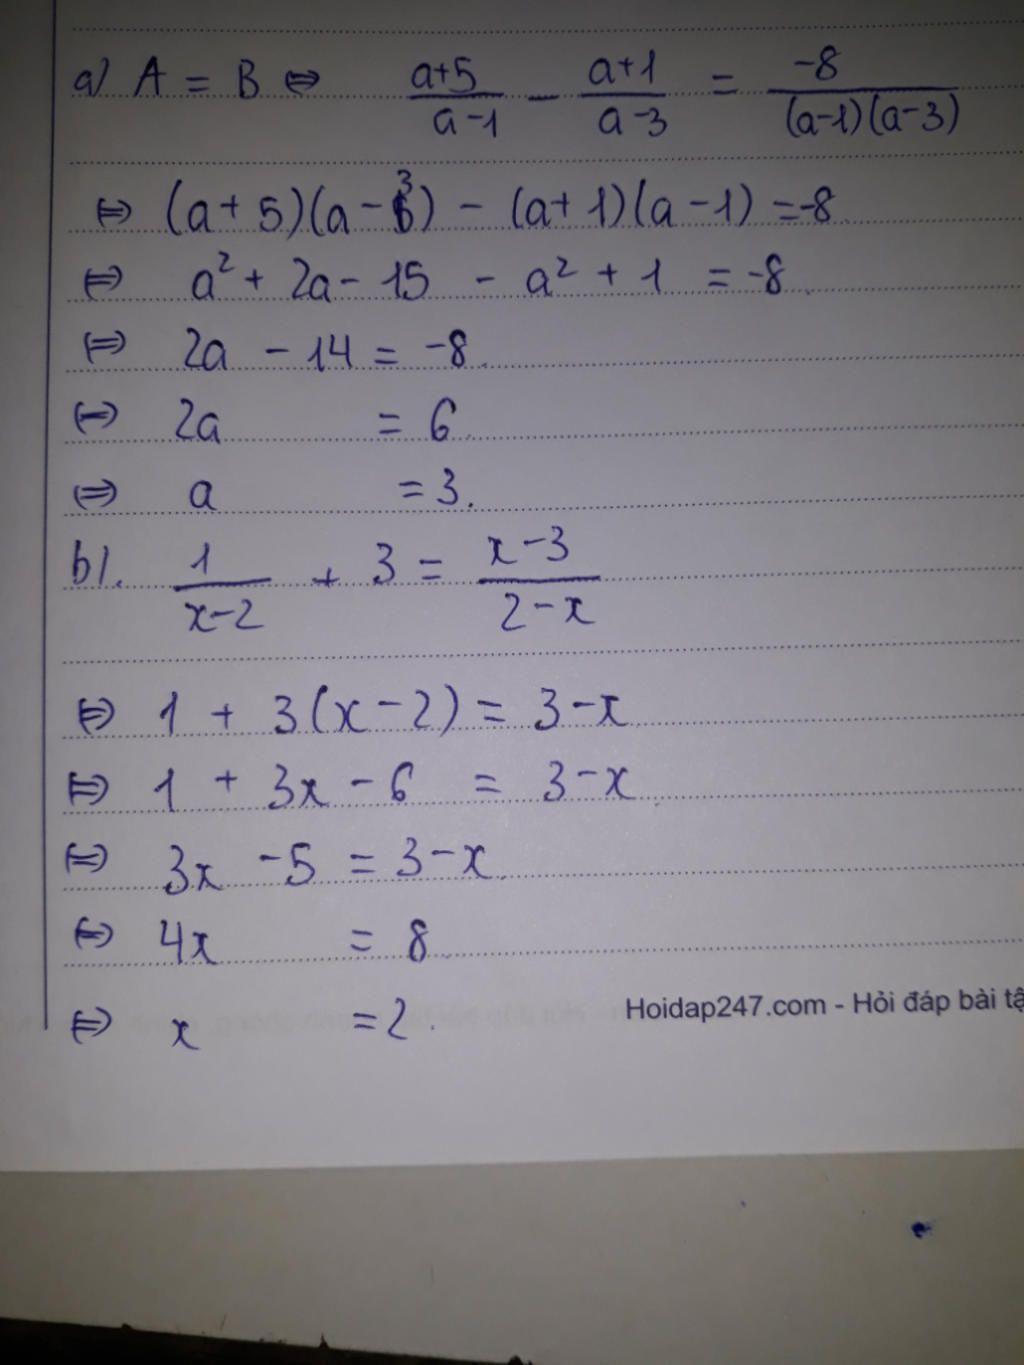 a) A = B ⇔ (a+5)/(a-1) - (a+1)/(a-3) = -8/((a-1)(a-3))
⇔ (a+5)(a-3) - (a+1)(a-1) = -8
⇔ a² + 2a - 15 - a² + 1 = -8
⇔ 2a - 14 = -8
⇔ 2a = 6
⇔ a = 3.
b). 1/(x-2) + 3 = (x-3)/(2-x)
⇔ 1 + 3(x-2) = 3-x
⇔ 1 + 3x - 6 = 3-x
⇔ 3x - 5 = 3-x
⇔ 4x = 8
⇔ x = 2.
Hoidap247.com - Hỏi đáp bài tậ